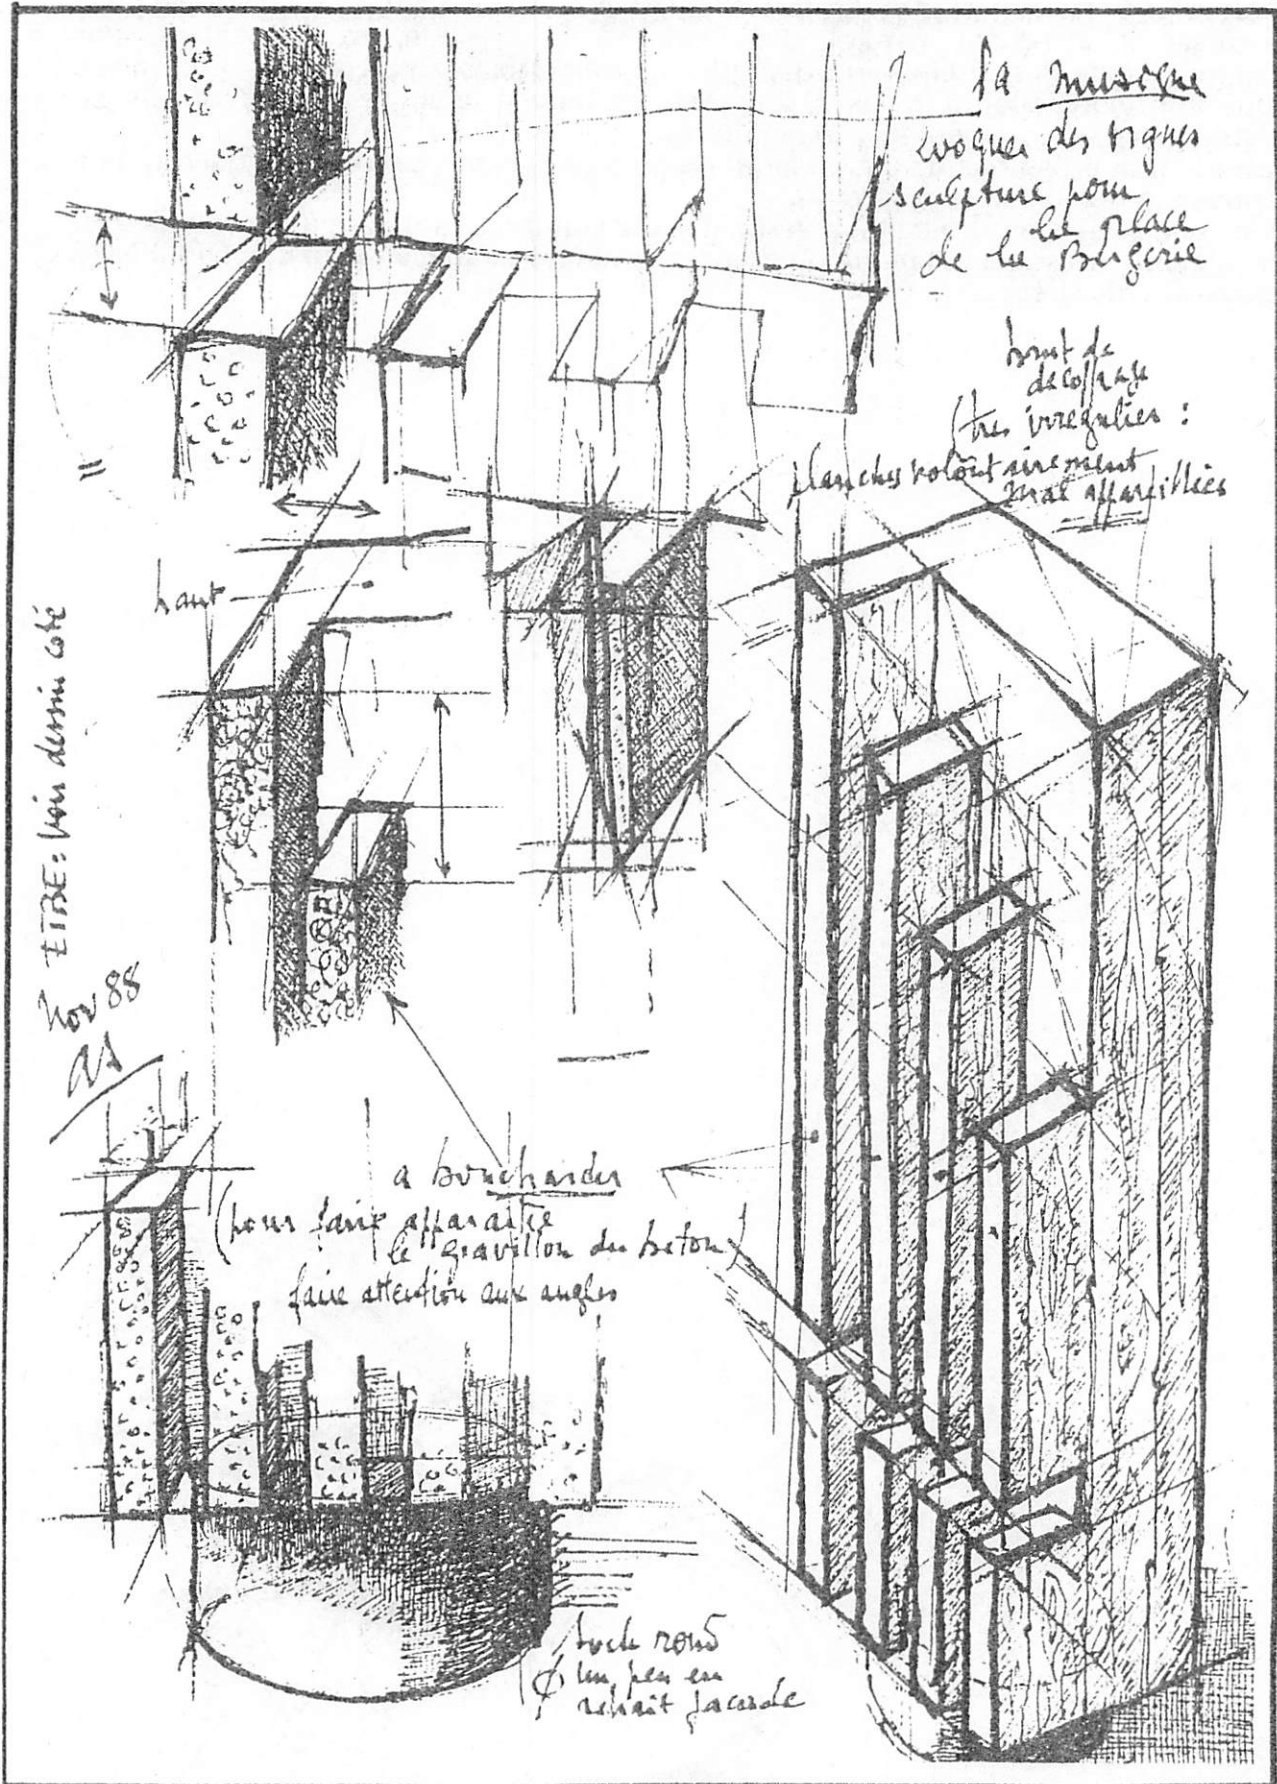 la musique
evoquer des orgues
sculpture pour
la place
de la Bergerie
brut de
decoffrage
(tres irregulier :
planches volontairement
mal appareillées
haut
voir dessin coté
Nov 88
a boucharder
(pour faire apparaitre
le gravillon du beton)
faire attention aux angles
socle rond
un peu en
retrait facade